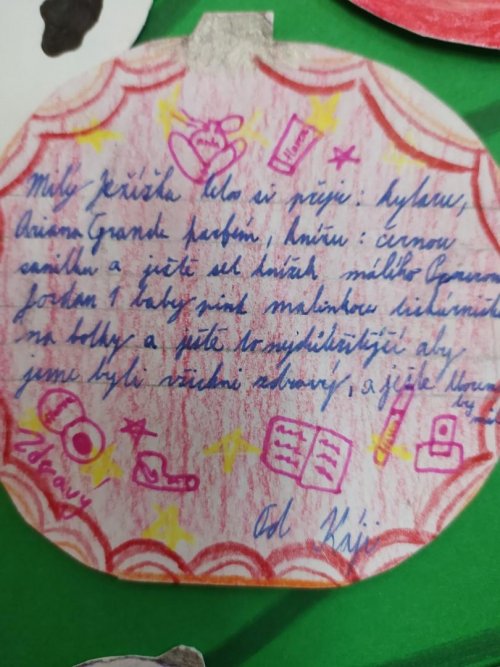 Milý Ježíška letos si přeje: kytaru,
Ariana Grande parfém, knížku: černou
sanitku a ještě set knížek, malého
Jordan 1 baby pink malinkou tiskárničku
na fotky a ještě to nejdůležitější aby
jsme byli všichni zdravý, a ještě
by
Zdravý
Od Kiji